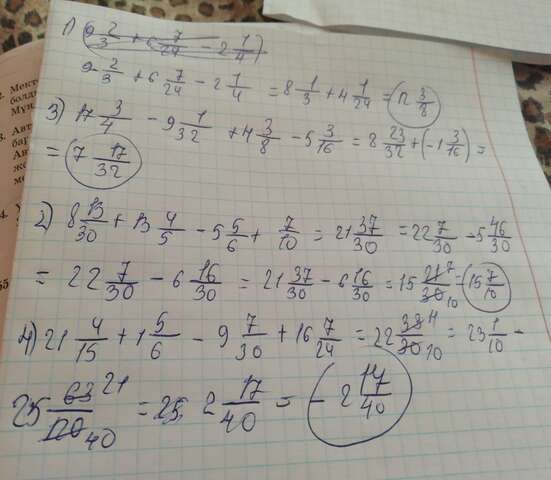 1) 9 2/3 + 6 7/24 - 2 1/4
9 2/3 + 6 7/24 - 2 1/4 = 8 1/3 + 4 1/24 = 12 3/8
3) 17 3/4 - 9 1/32 + 4 3/8 - 5 3/16 = 8 23/32 + (-1 3/16) =
= 7 17/32
2) 8 13/30 + 13 4/5 - 5 5/6 + 7/10 = 21 37/30 = 22 7/30 - 5 46/30
= 22 7/30 - 6 16/30 = 21 37/30 - 6 16/30 = 15 21/30 7/10 = 15 7/10
4) 21 4/15 + 1 5/6 - 9 7/30 + 16 7/24 = 22 33/30 11/10 = 23 1/10 -
25 63/120 21/40 = 25, 2 17/40 = - 2 17/40
2. Мект
болд
Мұн
3. Авт
бар
Ав
же
ме
4.